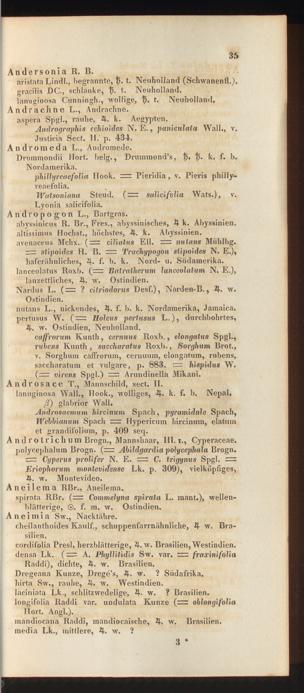 35
Andersonia R. B.
aristata Lindl., begrannte, ♄. t. Neuholland (Schwanenfl.).
gracilis DC., schlanke, ♄. t. Neuholland.
lanuginosa Cunningh., wollige, ♄. t. Neuholland.
Andrachne L., Andrachne.
aspera Spgl., rauhe, ♃. k. Aegypten.
Andrographis echioides N. E., paniculata Wall., v.
Justicia Sect. II. p. 434.
Andromeda L., Andromede.
Drommondii Hort. belg., Drummond's, ♄. ♄. k. f. b.
Nordamerika.
phillyreaefolia Hook. = Pieridia, v. Pieris philly-
reaefolia.
Watsoniana Steud. (= salicifolia Wats.), v.
Lyonia salicifolia.
Andropogon L., Bartgras.
abyssinicus R. Br., Fres., abyssinisches, ♃ k. Abyssinien.
altissimus Hochst., höchstes, ♃. k. Abyssinien.
avenaceus Mchx. (= ciliatus Ell. = nutans Mühlbg.
= stipoides H. B. = Trachypogon stipoides N. E.),
haferähnliches, ♃. f. k. Nord- u. Südamerika.
lanceolatus Roxb. (= Batratherum lanceolatum N. E.),
lanzettliches, ♃. w. Ostindien.
Nardus L. (= ? citriodorus Desf.), Norden-B., ♃. w.
Ostindien.
nutans L., nickendes, ♃. f. b. k. Nordamerika, Jamaica.
pertusus W. (= Holcus pertusus L.), durchbohrtes,
♃. w. Ostindien, Neuholland.
caffrorum Kunth, cernuus Roxb., elongatus Spgl.,
rubens Kunth, saccharatus Roxb., Sorghum Brot.,
v. Sorghum caffrorum, cernuum, elongatum, rubens,
saccharatum et vulgare, p. 883. = hispidus W.
(= virens Spgl.) = Arundinella Mikani.
Androsace T., Mannschild, sect. II.
lanuginosa Wall., Hook., wolliges, ♃. k. f. b. Nepal.
β) glabrior Wall.
Androsaemum hircinum Spach, pyramidale Spach,
Webbianum Spach = Hypericum hircinum, elatum
et grandifolium, p. 409 seq.
Androtrichum Brogn., Mannshaar, III. 1., Cyperaceae.
polycephalum Brogn. (= Abildgardia polycephala Brogn.
= Cyperus prolifer N. E. = C. trigynus Spgl. =
Eriophorum montevidense Lk. p. 309), vielköpfiges,
♃. w. Montevideo.
Aneilema RBr., Aneilema.
spirata RBr. (= Commelyna spirata L. mant.), wellen-
blätterige, ☉. f. m. w. Ostindien.
Aneimia Sw., Nacktähre.
cheilanthoides Kaulf., schuppenfarrnähnliche, ♃. w. Bra-
silien.
cordifolia Presl, herzblätterige, ♃. w. Brasilien, Westindien.
densa Lk. (= A. Phyllitidis Sw. var. = fraxinifolia
Raddi), dichte, ♃. w. Brasilien.
Dregeana Kunze, Dregé's, ♃. w. ? Südafrika.
hirta Sw., rauhe, ♃. w. Westindien.
laciniata Lk., schlitzwedelige, ♃. w. ? Brasilien.
longifolia Raddi var. undulata Kunze (= oblongifolia
Hort. Angl.).
mandiocana Raddi, mandiocaische, ♃. w. Brasilien.
media Lk., mittlere, ♃. w. ?
3 *